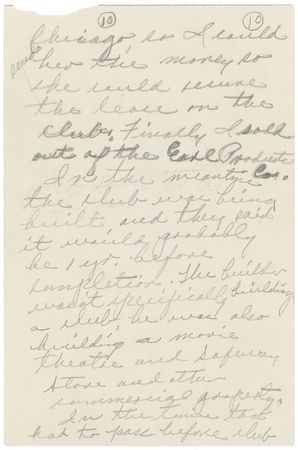 10 10
Chicago so I could
send her the money so
she could secure
the lease on the
club. Finally I sold
out of the Earl Products
Co.
In the meantime
the club was being
built and they said
it would probably
be 1 yr. before
completion. The builder
wasn't specifically building
a club he was also
building a movie
theatre and Safeway
Store and other
commercial property.
In the time that
had to pass before club